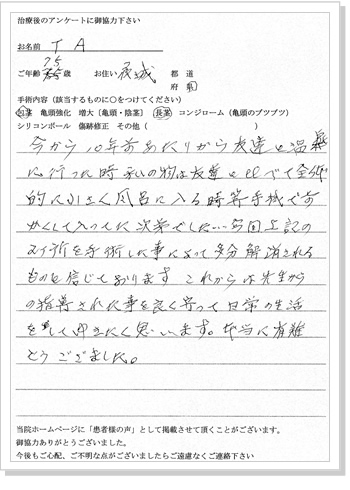 治療後のアンケートに御協力下さい
お名前 T A
75
ご年齢 歳 お住い 茨城 都 道
府 県
手術内容（該当するものに○をつけてください）
包茎 亀頭強化 増大（亀頭・陰茎） 長茎 コンジローム（亀頭のブツブツ）
シリコンボール 傷跡修正 その他（ ）
今から10年前あたりから友達と温泉
に行った時 私の物は友達と比べて全体
的に小さく風呂に入る時等手拭でお
かくして入っていた次第でした。今回上記の
2ヶ所を手術した事によって多分解消される
ものと信じております これからは先生から
の指導された事を良く守って日常の生活
をして行きたく思います。本当に有難
とうございました。
当院ホームページに「患者様の声」として掲載させて頂くことがございます。
御協力ありがとうございました。
今後もご心配、ご不明な点がございましたらご遠慮なくご連絡下さい